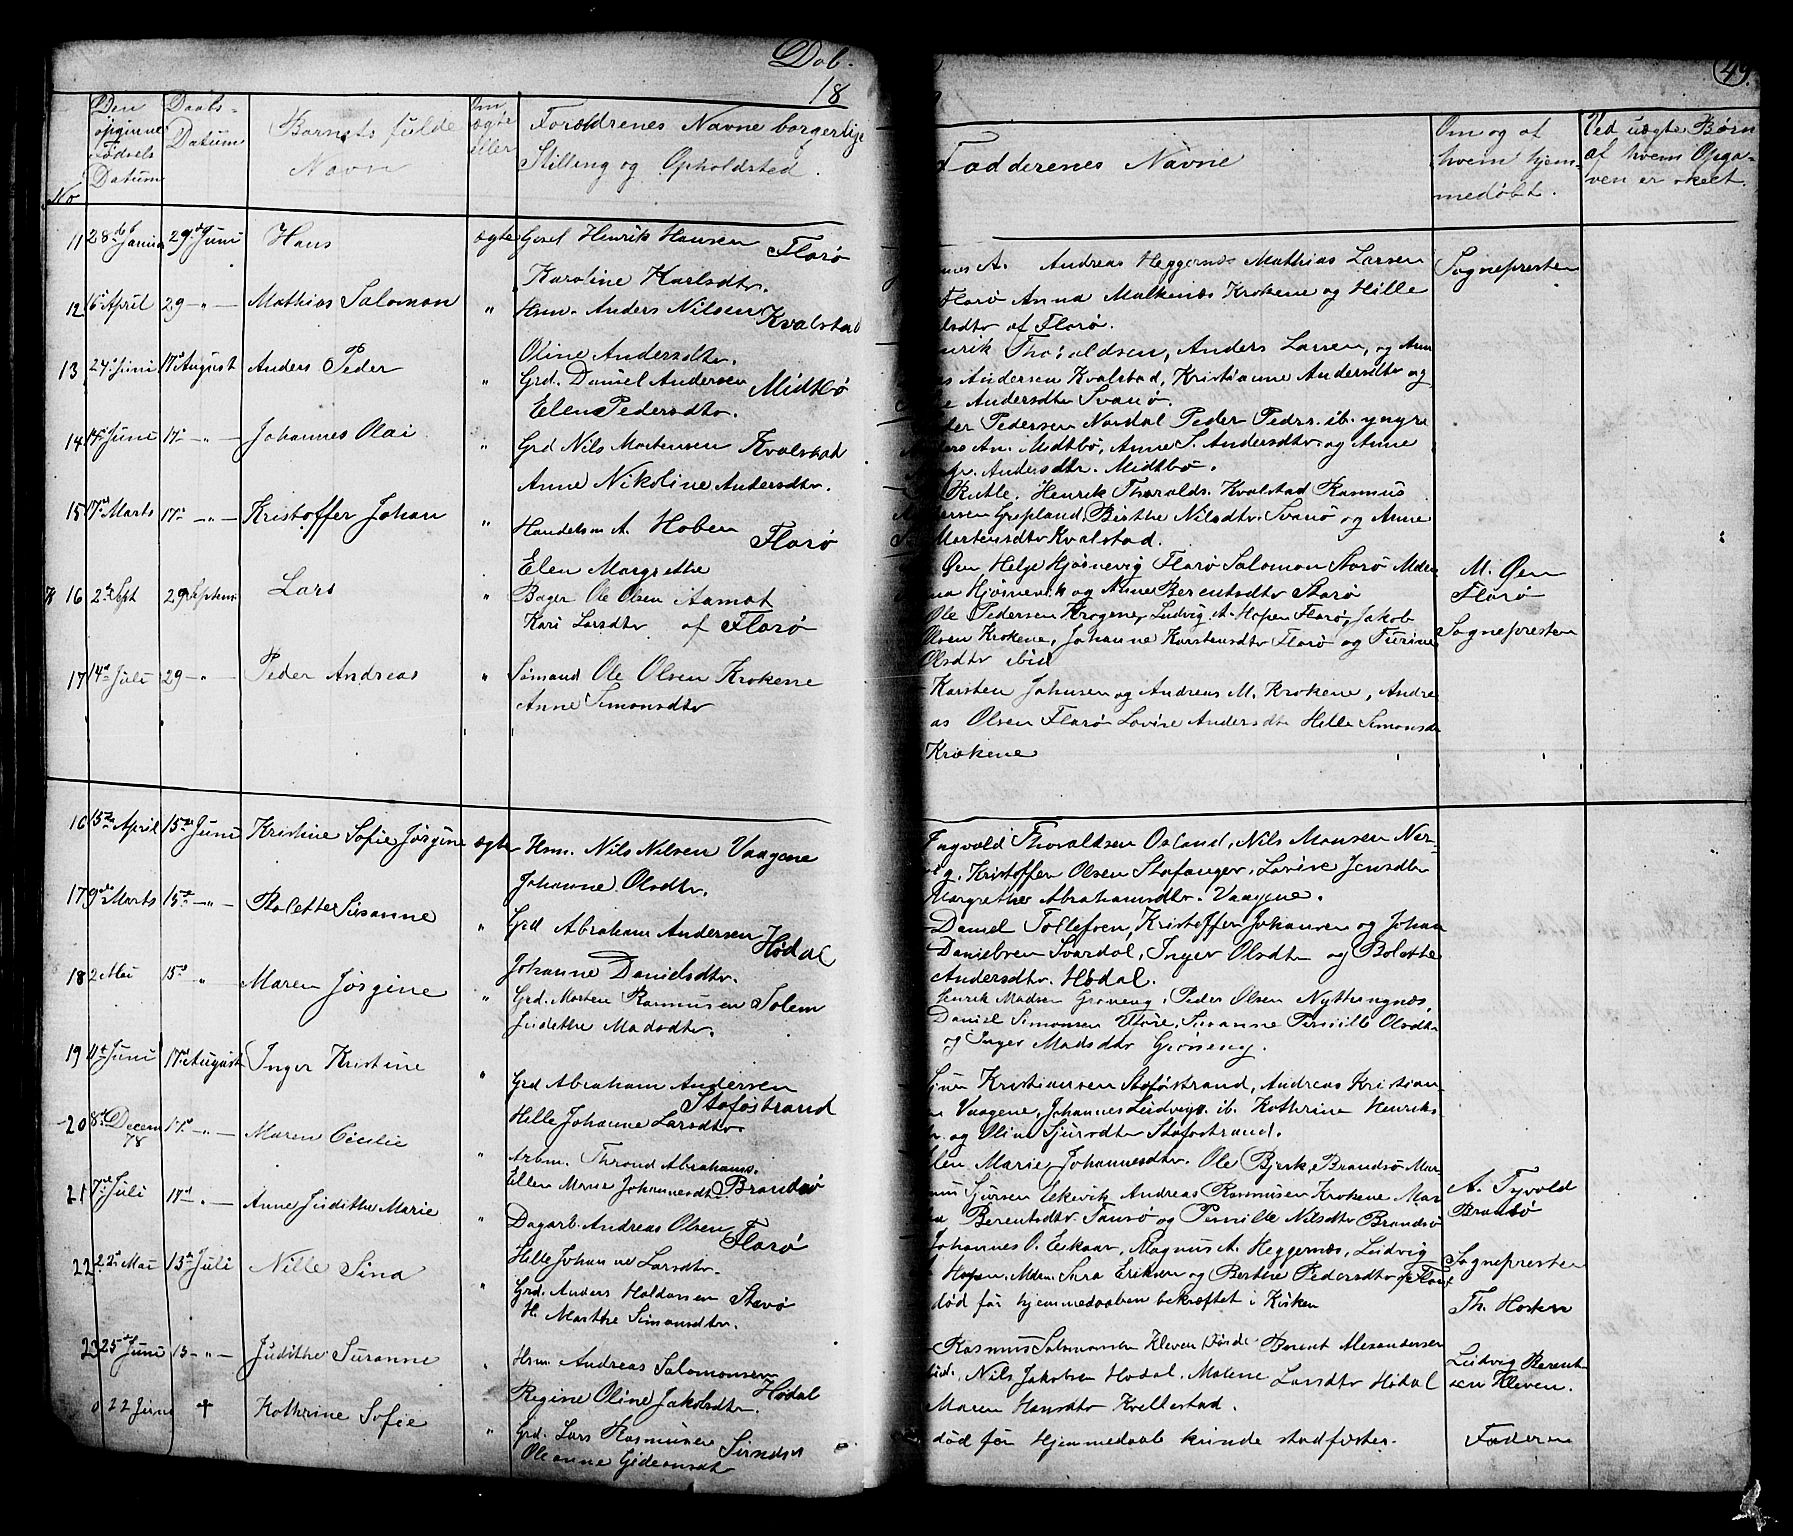 Døb.
18
49.
No
Den opgivne Fødsels Datum
Daabs-Datum
Barnets fulde Navn
Om ægte eller
Forældrenes Navne borgerlige Stilling og Opholdsted.
Faddernes Navne
Om og af hvem hjemmedøbt.
Ved uægte Børn af hvem Opgaven er skeet.
11 28de Januar 29de Juni Hans ægte Gesel Henrik Hansen Florø
Karoline Karlsdtr.
12 16 April 29 -„- Mathias Salomon „ Hsm. Anders Nilsen Kvalstad
Oline Andersdtr.
13 24 Juni 17 August Anders Peder „ Grd. Daniel Andersen Midtbø
Elen Pedersdtr.
14 14 Juni 17 -„- Johannes Olai „ Grd Nils Mortensen Kvalstad
Anne Nikoline Andersdtr.
15 17 Marts 17 -„- Kristoffer Johan „ Handelsm A. Hoben Florø
Elen Margrethe
16 2 Sept 29 Septemb Lars „ Bager Ole Olsen Aamot
Kari Larsdtr af Florø
17 14 Juli 29 -„- Peder Andreas „ Sømand Ole Olsen Krokene
Anne Simonsdtr
16 15de April 15de Juni Kristine Sofie Jørgine ægte Hsm. Nils Nilsen Vaagene
Johanne Olsdtr.
17 9de Marts 15de -„- Bolette Susanne „ Grd Abraham Andersen Hødal
Johanne Danielsdtr.
18 2 Mai 15de „ Maren Jørgine „ Grd. Morten Rasmusen Solem
Judithe Madsdtr.
19 4 Juni 17 August Inger Kristine „ Grd Abraham Andersen Staføstrand
Hille Johanne Larsdtr.
20 8 Decem 78 17 -„- Maren Cicilie „ Arbm. Thrond Abrahams.
Ellen Marie Johannesdtr Brandsø
21 7 Juli 17 -„- Anne Judithe Marie „ Dagarb. Andreas Olsen Florø
Hille Johanne Larsdtr.
22 22 Mai 13 Juli Nille Sina „ Grd. Anders Haldorsen Stavø
H. Marthe Simonsdtr.
23 25 Juni 13 -„- Judithe Susanne „ Hsm Andreas Salomonsen Hødal
Regine Oline Jakobsdtr.
0 22 Juni † Kathrine Sofie „ Grd. Lars Rasmusen
Oleanne Gideonsdt
nes A. Andreas Heggernes Mathias Larsen Sognepresten
Florø Anna Malkenæs Krokene og Hille
lsdtr af Florø.
nrik Thoraldsen, Anders Larsen, og Ann
as Andersen Kvalstad, Kristianne Andersdtr og
e Andersdtr Svanø.
der Pedersen Nordal Peder Peders. ib. yngre
ers An. Midtbø, Anne S. Andersdtr og Anne
Andersdtr. Midtbø.
Rutle, Henrik Thoralds. Kvalstad Rasmus
ersen Grepland, Birthe Nilsdtr Svanø og Anne
Mortensdtr Kvalstad.
Øen Helge Hjøsnevig Florø Salomon Storø Mdm M. Øen
na Hjøsnevik og Anne Berentsdtr Storø Florø
Ole Pedersen Krogene, Ludvig A. Hopen Florø, Jakob
Olsen Krokene, Johanne Karstensdtr Florø og Turine Sognepresten
Olsdtr ibid
Karsten Johnsen og Andreas M. Krokene, Andre
as Olsen Florø Lovise Andersdtr Hille Simonsdr
Krokene
Ingvald Thoraldsen Osland, Nils Monsen Ner-
vig. Kristoffer Olsen Stafanger, Lovise Jensdtr
Margrethe Abrahamsdtr. Vaagene.
Daniel Tollefsen, Kristoffer Johansen og Johan
Danielsen Svardal, Inger Olsdtr og Bolette
Andersdtr. Hødal.
Henrik Madsen Grøneng, Peder Olsen Nyttingnæs,
Daniel Simonsen Utøre, Susanne Pernille Olsdtr
og Inger Madsdtr Grøneng.
Kristiansen Staføstrand, Andreas Kristian-
n Vaagene, Johannes Leidvigs. ib. Kathrine Henriks
r. og Oline Sjursdtr Staføstrand.
Elen Marie Johannesdtr. Ole Bjerk, Brandsø Mar
Sjursen Eikevik Andreas Rasmusen Krokene Mar A. Tyvold
Berentsdtr. Tansø og Pernille Nilsdtr Brandsø Brandsø
Johannes O. Eikaar, Magnus A. Heggernæs, Leidvig
Hopen, Mdm. Sara Eriksen og Bertine Pedersdtr af Florø Sognepresten
død før hjemmedaaben bekræftet i Kirken Th. Hosten
Rasmus Salomonsen Kleven Førde Berent Alexandersen
ibid, Nils Jakobsen Hødal, Malene Larsdtr Hødal Leidvig Berent-
Maren Hansdtr Kvellestad. sen Kleven.
død før Hjemmedaab kunde stadfæstes. Faderen